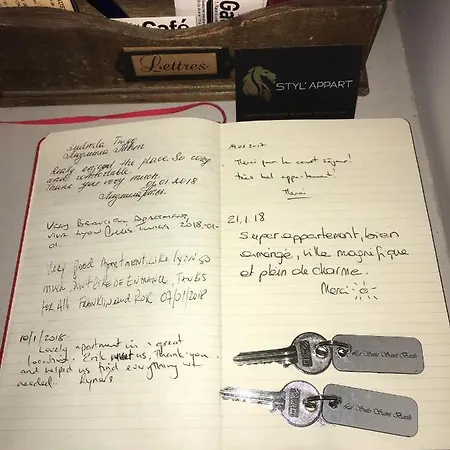 Café
Ga
Lettres
STYL'APPART
Ludmila
Really enjoyed the place. So cosy
and comfortable.
Thank you very much
04.01.2018
Very Beautiful Apartment,
2018-01-
01.
Very Good Apartment, Like Lyon so
much, Don't Like De Entrance, Tanks
for All Franklin and 07/01/2018
10/1/2018
Lovely apartment in a great
location. Erik met us, Thank-you
and helped us find everything we
needed.
Merci pour le court séjour!
très bel appartement!
Merci
21.1.18
Super appartement, bien
aménagé, ville magnifique
et plein de charme.
Merci
La Suite Saint Barth
La Suite Saint Barth